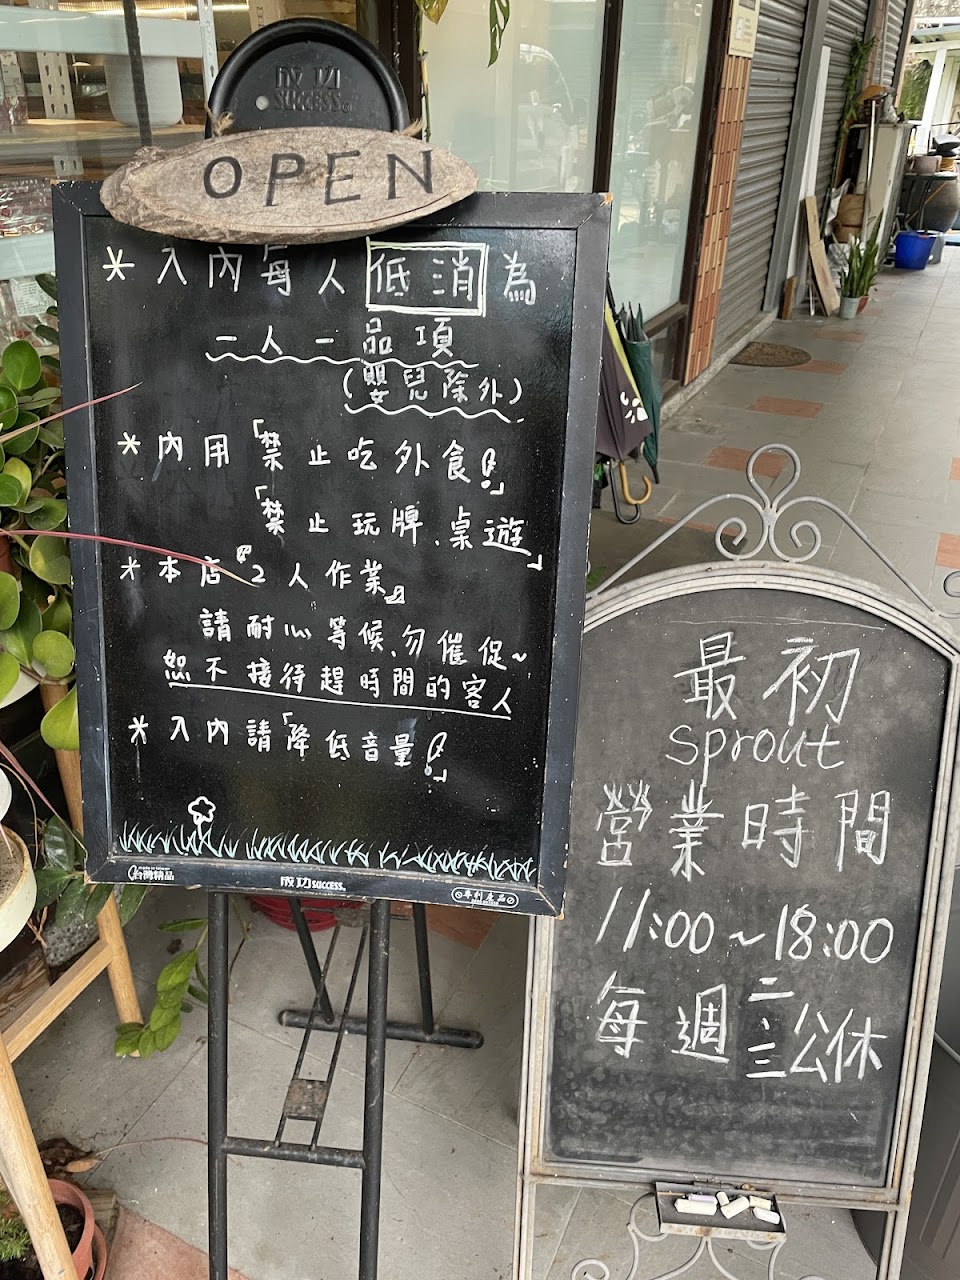 成功
SUCCESS
OPEN
* 入內每人低消為
一人一品項
(嬰兒除外)
* 內用「禁止吃外食!」
「禁止玩牌、桌遊」
* 本店『2人作業』
請耐心等候、勿催促~
恕不接待趕時間的客人
* 入內請「降低音量!」
made in taiwan
台灣精品
成功 SUCCESS
專利產品
最初
sprout
營業時間
11:00~18:00
每週二、三公休